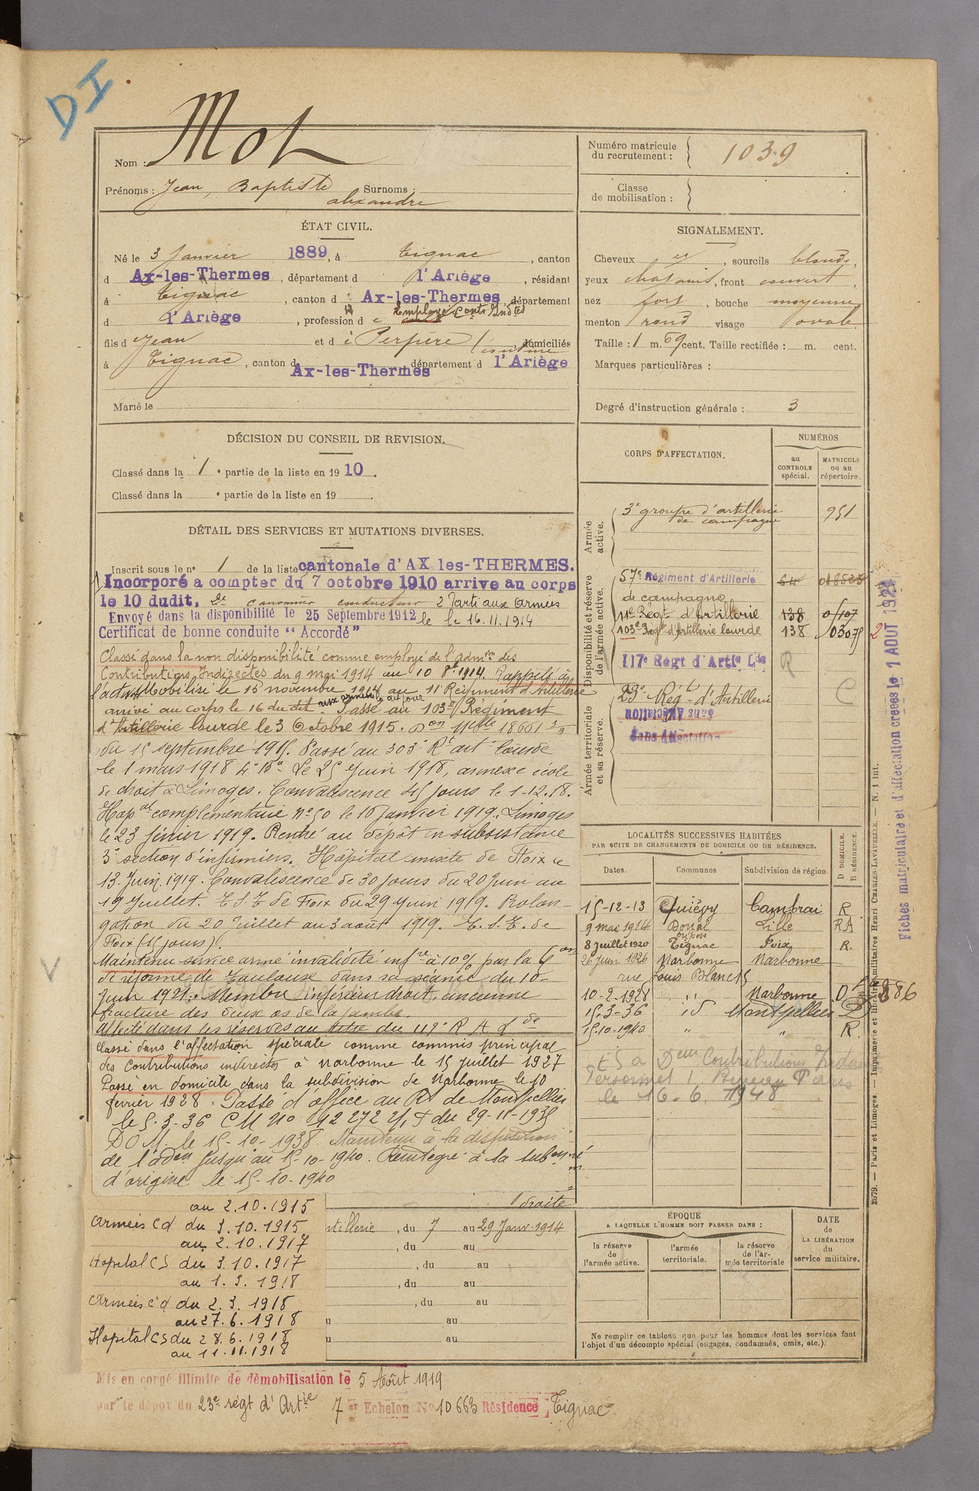 DI
Nom : Mot
Prénoms : Jean, Baptiste Surnoms :
alexandre
Numéro matricule du recrutement : 1039
Classe de mobilisation :
ÉTAT CIVIL.
Né le 3 Janvier 1889, à Tignac, canton
d Ax-les-Thermes, département d l'Ariège, résidant
à Tignac, canton d Ax-les-Thermes, département
d l'Ariège, profession d
fils d Jean et d e Perpere domiciliés
à Tignac, canton d Ax-les-Thermes département d l'Ariège
Marié le
SIGNALEMENT.
Cheveux et, sourcils blonds,
yeux chatains, front couvert,
nez fort, bouche moyenne
menton rond visage ovale
Taille : 1 m. 69 cent. Taille rectifiée : m. cent.
Marques particulières :
Degré d'instruction générale : 3
DÉCISION DU CONSEIL DE REVISION.
Classé dans la 1e partie de la liste en 1910.
Classé dans la e partie de la liste en 19
DÉTAIL DES SERVICES ET MUTATIONS DIVERSES.
Inscrit sous le no 1 de la liste cantonale d'AX les-THERMES.
Incorporé a compter du 7 octobre 1910 arrive au corps
le 10 dudit, 2e canonnier conducteur
Envoyé dans la disponibilité le 25 Septembre 1912
Certificat de bonne conduite "Accordé"
2 Parti aux Armées
le 16.11.1914
Classé dans la non disponibilité comme employé de l'admon des
Contributions Indirectes du 9 mai 1914 au 10 1914 Rappelé à
l'activité Mobilisé le 15 novembre 1914 au 11 Régiment d'Artillerie
arrivé au corps le 16 du dit. aux armées le au jour Passé au 103e Régiment
d'Artillerie lourde le 3 Octobre 1915. 18661
du 15 septembre 191 Passé au 303e R art Lourde
le 1 mars 1918 Le 25 Juin 1918, annexe école
de droit à Limoges. Convalescence 45 jours le 1-12.18.
Hopal complémentaire no 50 le 10 Janvier 1919. Limoges
le 23 février 1919. Rentré au dépôt en subsistance
3e section d'infirmiers. Hôpital mixte de Foix le
13 Juin 1919. Convalescence de 30 jours du 20 Juin au
19 Juillet. de Foix du 29 Juin 1919. Prolon-
gation du 20 Juillet au 3 août 1919. de
Foix (15 jours).
Maintenu service armé invalidité infre à 10% par la
de réforme de Toulouse dans sa séance du 10
Juin 1921. Membre inférieur droit, ancienne
fracture des deux os de la jambe.
Affecté dans les réserves au titre du 117e R A L
Classé dans l'affectation spéciale comme commis principal
des contributions indirectes à Narbonne le 15 Juillet 1927
Passé en domicile dans la subdivision de Narbonne le 10
fevrier 1928. Passé d'office au Bu de Montpellier
le 5-3-36 CM no 12272 du 29-11-1935
D O M. le 15-10-1938. Maintenu à la disposition
de l'adon jusqu'au 15-10-1940. Réintegré à la subon
d'origine le 15-10-1940
droite
au 2.10.1915
Armées Cd du 3.10.1915
au 2.10.1917
Hopital CS du 3.10.1917
au 1.3.1918
Armées Cd du 2.3.1918
au 27.6.1918
Hopital CS du 28.6.1918
au 11.11.1918
tillerie, du 7 au 29 Janv 1914
, du au
, du au
, du au
, du au
au
au
CORPS D'AFFECTATION.
NUMÉROS
au CONTROLE spécial.
MATRICULE ou au répertoire.
Armée active.
3e groupe d'artillerie de campagne 951
Disponibilité et réserve de l'armée active.
57e Régiment d'Artillerie 64
de campagne
11e Régt d'Artillerie 138
103e Régt d'Artillerie lourde 138
117e Régt d'Artie Lde R
Armée territoriale et sa réserve.
23e Regt d'Artillerie C
Sans Affectation
Sans Affectation
LOCALITÉS SUCCESSIVES HABITÉES
PAR SUITE DE CHANGEMENTS DE DOMICILE OU DE RÉSIDENCE.
Dates. Communes Subdivision de région D DOMICILE. R RÉSIDENCE.
15-12-13 Quiévy Cambrai R
9 mai 1914 Douai Lille RA
8 Juillet 1920 Tignac Foix R.
26 Juin 1926 Narbonne Narbonne
rue Louis Blanc
10-2-1928 " Narbonne D 886
15-3-36 id Montpellier D
15-10-1940 " " R.
ES a Deux Contributions Indir
Personnel 1 Bureau Paris
le 16-6 1948
ÉPOQUE
A LAQUELLE L'HOMME DOIT PASSER DANS :
la réserve de l'armée active.
l'armée territoriale.
la réserve de l'armée territoriale
DATE de LA LIBÉRATION du service militaire.
Ne remplir ce tableau que pour les hommes dont les services font
l'objet d'un décompte spécial (engagés, condamnés, omis, etc.).
Fiches matriculaire et d'affectation créées le 1 AOUT 192
2079. — Paris et Limoges. — Imprimerie et librairie militaires Henri CHARLES-LAVAUZELLE. — N. 1 int.
Mis en congé illimité de démobilisation le 5 Août 1919
par le dépot du 23e régt d'Artie 7e Echelon No 10663 Résidence Tignac.